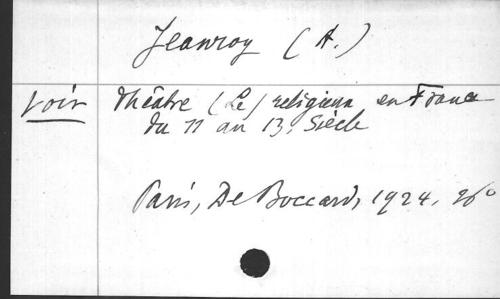 Jeanroy (A.)
Voir Théâtre (Le) religieux en France
du 11 au 13. Siècle
Paris, De Boccard, 1924.